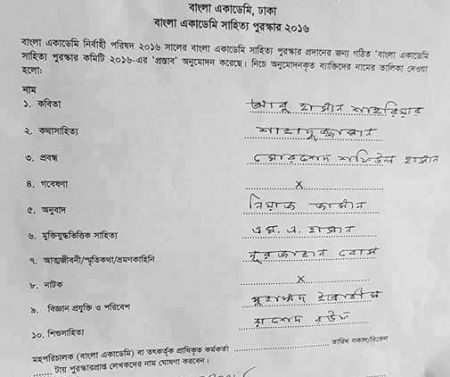 বাংলা একাডেমি, ঢাকা
বাংলা একাডেমি সাহিত্য পুরস্কার ২০১৬
বাংলা একাডেমি নির্বাহী পরিষদ ২০১৬ সালের বাংলা একাডেমি সাহিত্য পুরস্কার প্রদানের জন্য গঠিত 'বাংলা একাডেমি
সাহিত্য পুরস্কার কমিটি ২০১৬-এর 'প্রস্তাব' অনুমোদন করেছে। নিচে অনুমোদনকৃত ব্যক্তিদের নামের তালিকা দেওয়া
হলো:
নাম
১. কবিতা আবু হাসান শাহরিয়ার
২. কথাসাহিত্য শাহাদুজ্জামান
৩. প্রবন্ধ মোরশেদ শফিউল হাসান
৪. গবেষণা x
৫. অনুবাদ নিয়াজ জামান
৬. মুক্তিযুদ্ধভিত্তিক সাহিত্য এম. এ. হাসান
৭. আত্মজীবনী/স্মৃতিকথা/ভ্রমণকাহিনি নূরজাহান বোস
৮. নাটক x
৯. বিজ্ঞান প্রযুক্তি ও পরিবেশ
১০. শিশুসাহিত্য রাশেদ রউফ
মহপরিচালক (বাংলা একাডেমি) বা তৎকর্তৃক প্রাধিকৃত কর্মকর্তা .................... তারিখ সকাল/বিকেল
............ টায় পুরস্কারপ্রাপ্ত লেখকদের নাম ঘোষণা করবেন।